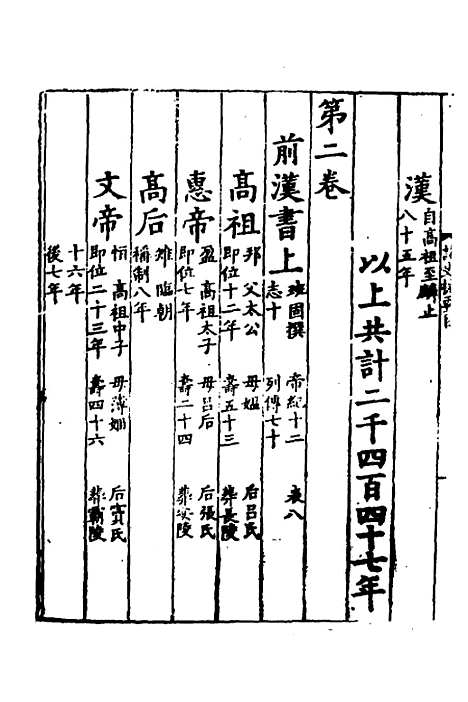 漢 自高祖至麟止 八十五年
以上共計二千四百四十七年
第二卷
前漢書上 班固撰 帝紀十二 表八 志十 列傳七十
高祖 邦 父太公 母媪 后呂氏 即位十二年 壽五十三 葬長陵
惠帝 盈 高祖太子 母呂后 后張氏 即位七年 壽二十四 葬安陵
高后 雉 臨朝 稱制八年
文帝 恒 高祖中子 母薄姬 后竇氏 即位二十三年 壽四十六 葬霸陵
十六年 後七年